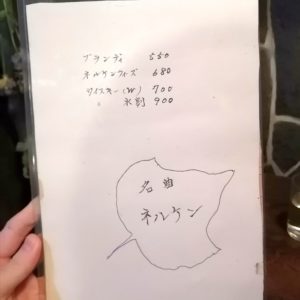 ブランディ 550
ネルケンフィズ 680
ウイスキー(W) 700
〃 水割 900
名曲
ネルケン